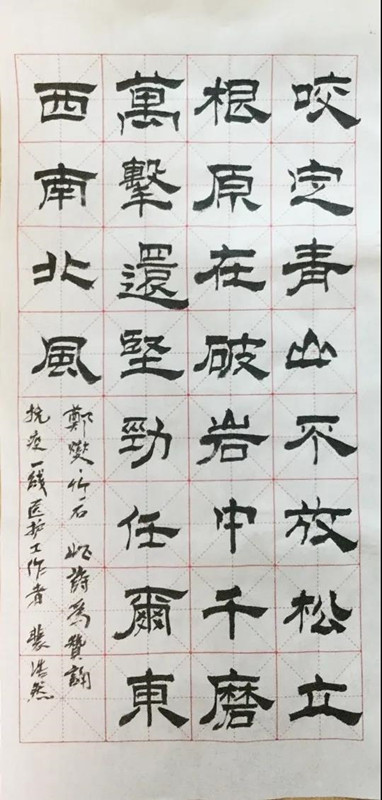 咬定青山不放松立
根原在破岩中千磨
萬擊還堅勁任爾東
西南北風
鄭燮·竹石 此詩為贊誦
抗疫一线医护工作者 裴浩然